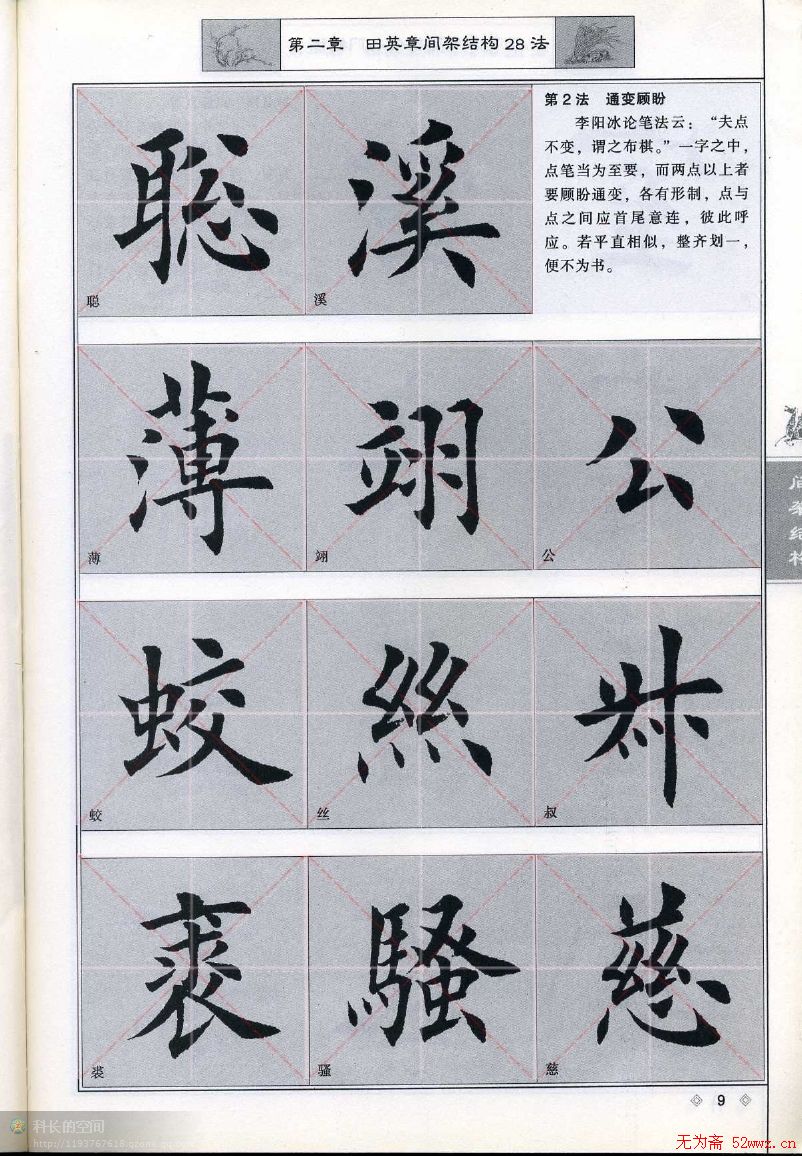 第二章 田英章间架结构28法
第2法 通变顾盼
李阳冰论笔法云：“夫点
不变，谓之布棋。”一字之中，
点笔当为至要，而两点以上者
要顾盼通变，各有形制，点与
点之间应首尾意连，彼此呼
应。若平直相似，整齐划一，
便不为书。
聪 溪
聪 溪
薄 翊 公
薄 翊 公
蛟 絲
蛟 丝 叔
裘 騷 慈
裘 骚 慈
间架结构
9
科长的空间
http://1193767618.qzone.qq.com
无为斋 52wwz.cn